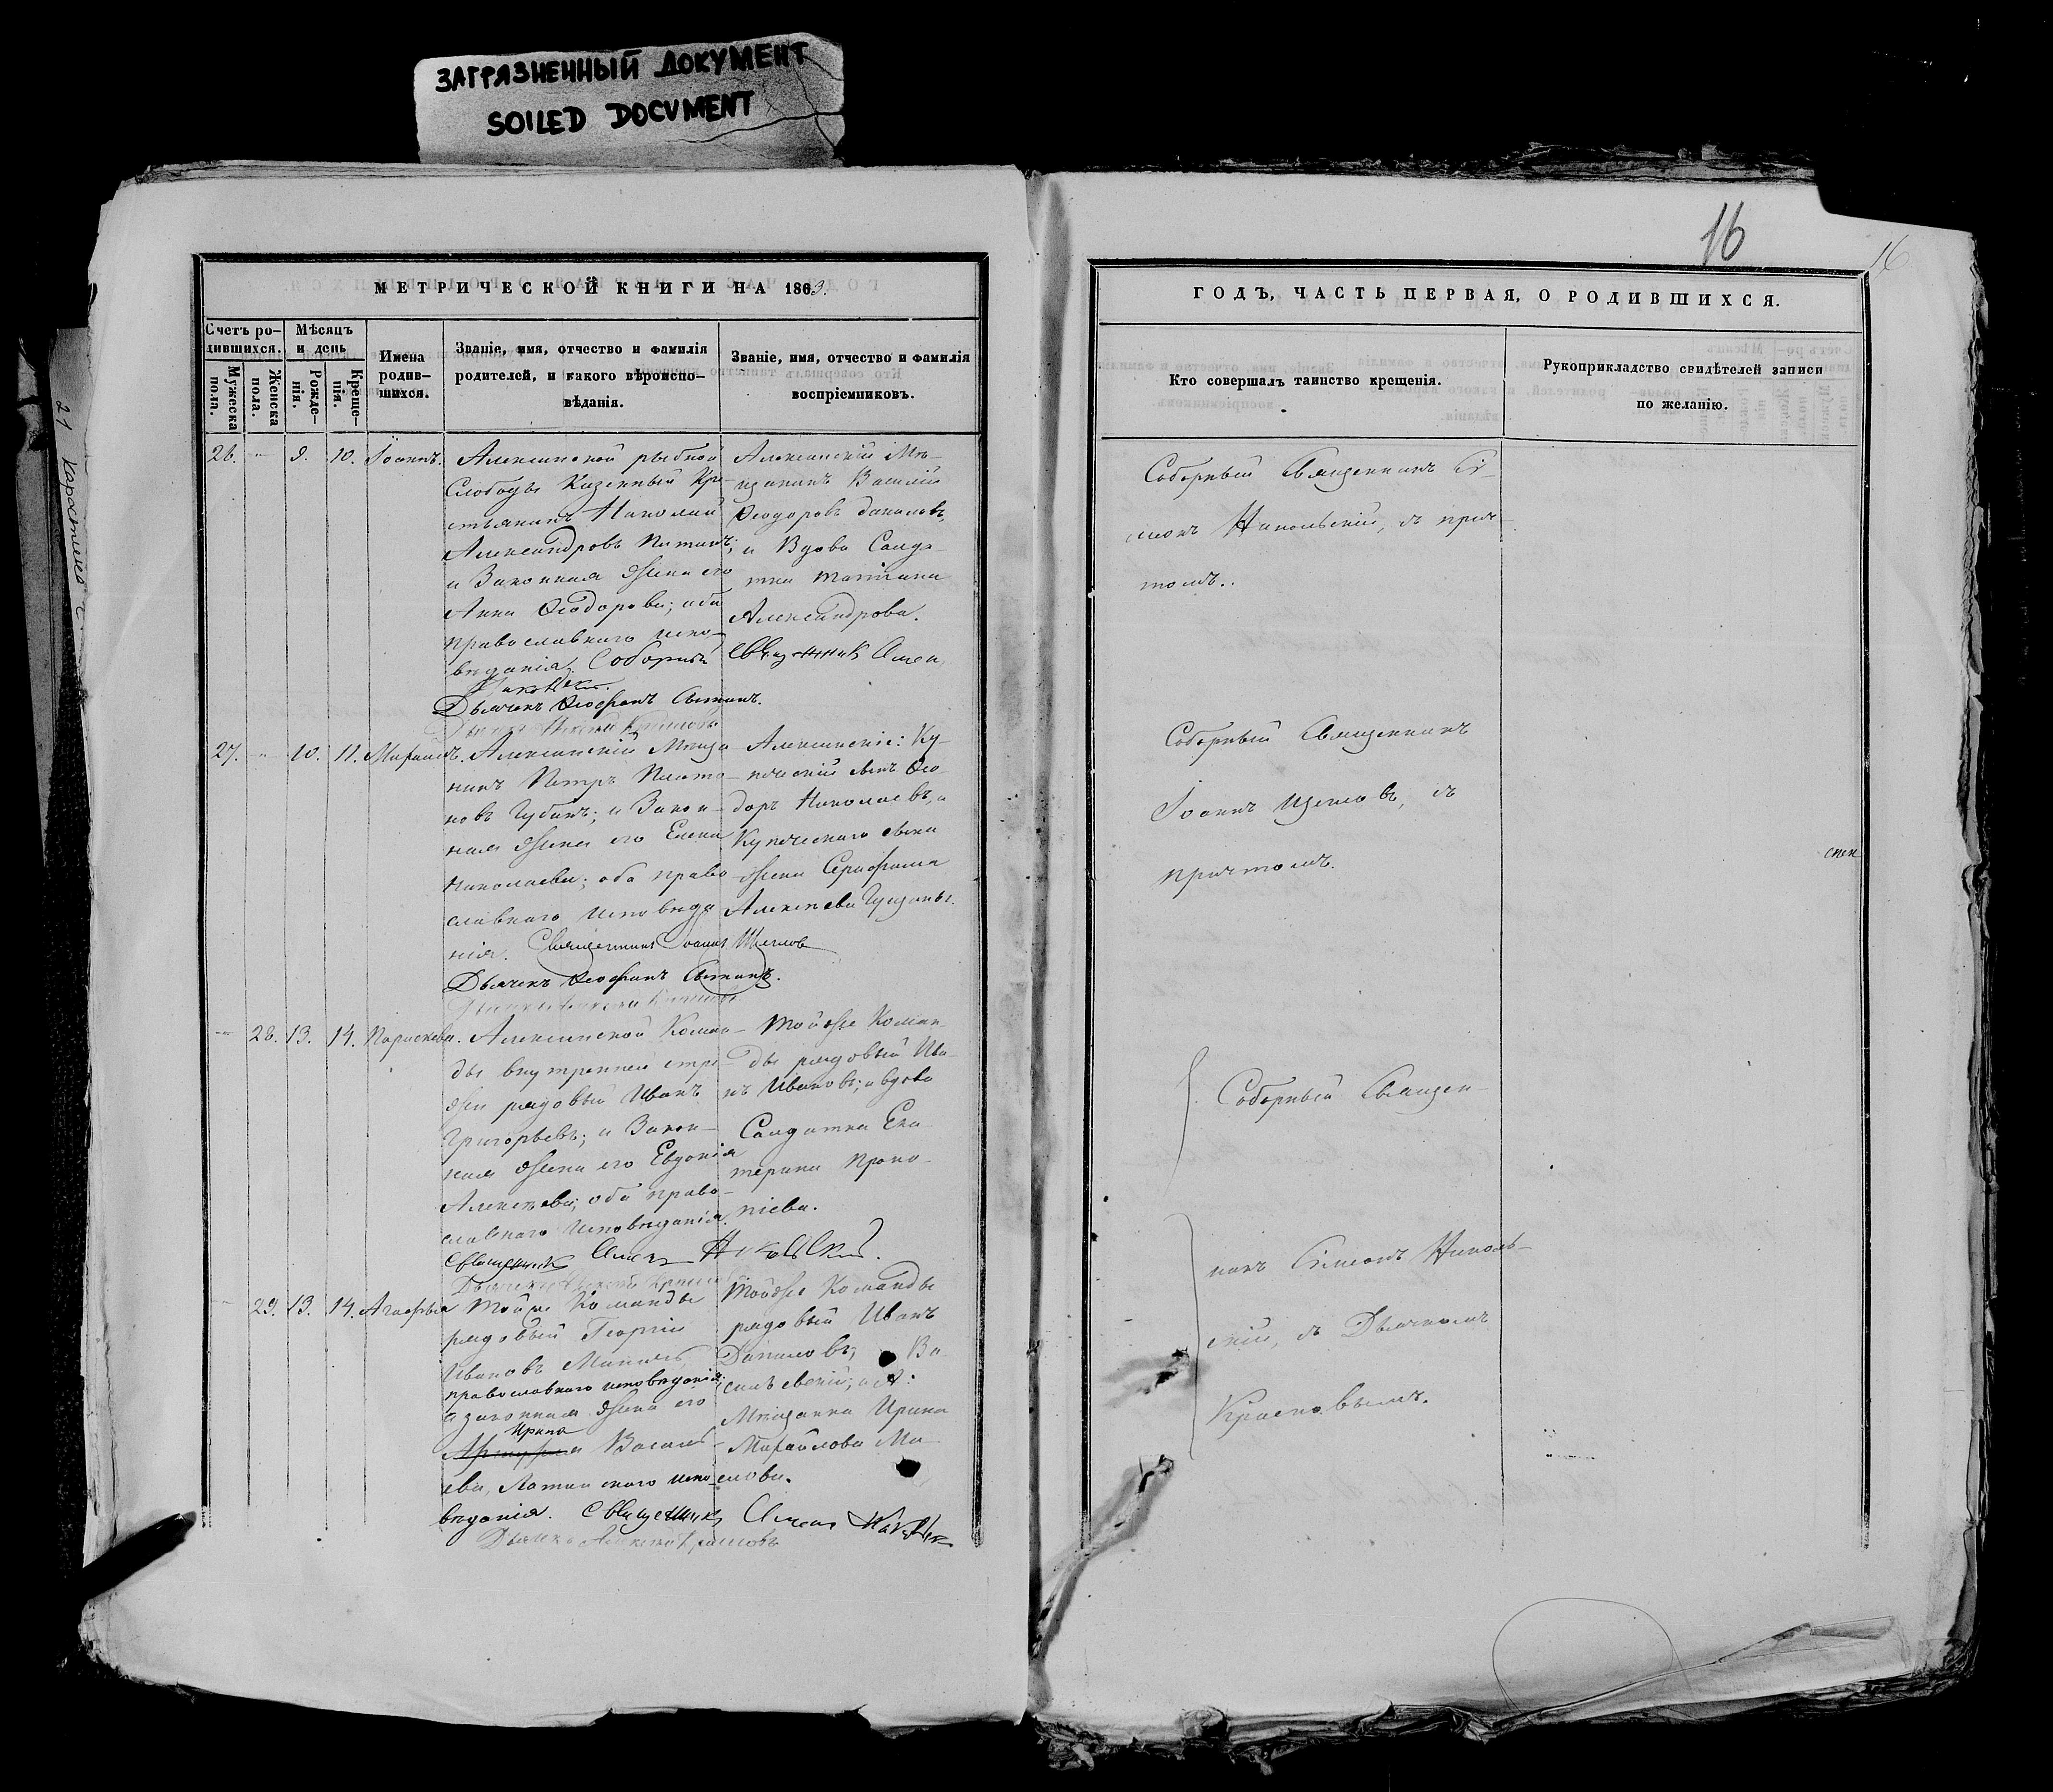 ЗАГРЯЗНЕННЫЙ ДОКУМЕНТ
SOILED DOCUMENT
16
16
МЕТРИЧЕСКОЙ КНИГИ НА 1863.
Счетъ родившихся.
Мужеска пола.
Женска пола.
Мѣсяцъ и день
Рожденія.
Крещенія.
Имена родившихся.
Званіе, имя, отчество и фамилія
родителей, и какого вѣроиспо-
вѣданія.
Званіе, имя, отчество и фамилія
воспріемниковъ.
26. 9. 10. Іоаннъ.
Алексинской рыбной
Слободы Казенный Кре-
стьянинъ Николай
Александровъ
и Законная жена его
Анна Ѳеодорова; оба
православнаго испо-
вѣданія. Соборный
Дьячекъ Ѳеофанъ
Алексинскій Мѣ-
щанинъ Василій
Ѳеодоровъ
и Вдова Салда-
тка Татіана
Александрова.
Священник
27. 10. 11. Михаилъ.
Алексинскій Мѣща-
нинъ Петръ Плато-
новъ Губинъ; и Закон-
ная жена его Елена
Николаева; оба право-
славнаго исповѣда-
нія. Священникъ Іоаннъ Щегловъ
Дьячекъ Ѳеофанъ
Алексинскіе: Ку-
печескій сынъ Ѳео-
доръ Николаевъ, и
Купеческаго сына
жена Серафима
Алексѣева
28. 13. 14. Параскева.
Алексинской Коман-
ды внутренней стра-
жи рядовый Иванъ
Григорьевъ; и Закон-
ная жена его Евдокія
Алексѣева; оба право-
славнаго исповѣданія.
Священник
Тойже Коман-
ды рядовый Ива-
нъ Ивановъ; и вдова
Салдатка Ека-
терина Проко-
піева.
29. 13. 14. Агафья
Тойже Команды
рядовый Георгій
Ивановъ
православнаго исповѣданія;
а законная жена его
Ирина
Василь-
ева, Латинскаго испо-
вѣданія. Священникъ
Тойже Команды
рядовый Иванъ
Даниловъ; Ва-
сильевскій; и А.
Мѣщанка Ирина
Михайлова Ма-
слова.
ГОДЪ, ЧАСТЬ ПЕРВАЯ, О РОДИВШИХСЯ.
Кто совершалъ таинство крещенія.
Рукоприкладство свидѣтелей записи
по желанію.
Соборный Священникъ Сѵ-
меонъ Никольскій, съ прич-
томъ.
Соборный Священникъ
Іоаннъ Щегловъ, съ
причтомъ.
Соборный Священ-
никъ Сѵмеонъ Николь-
скій, съ Дьячкомъ
Красновымъ.